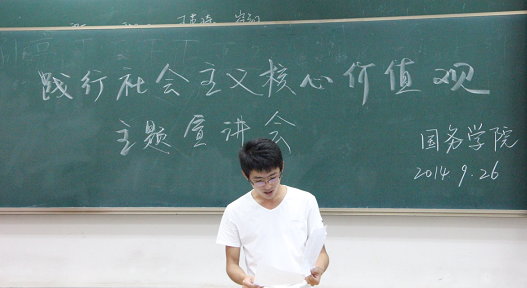 践行社会主义核心价值观
主题宣讲会
国务学院
2014 9.26